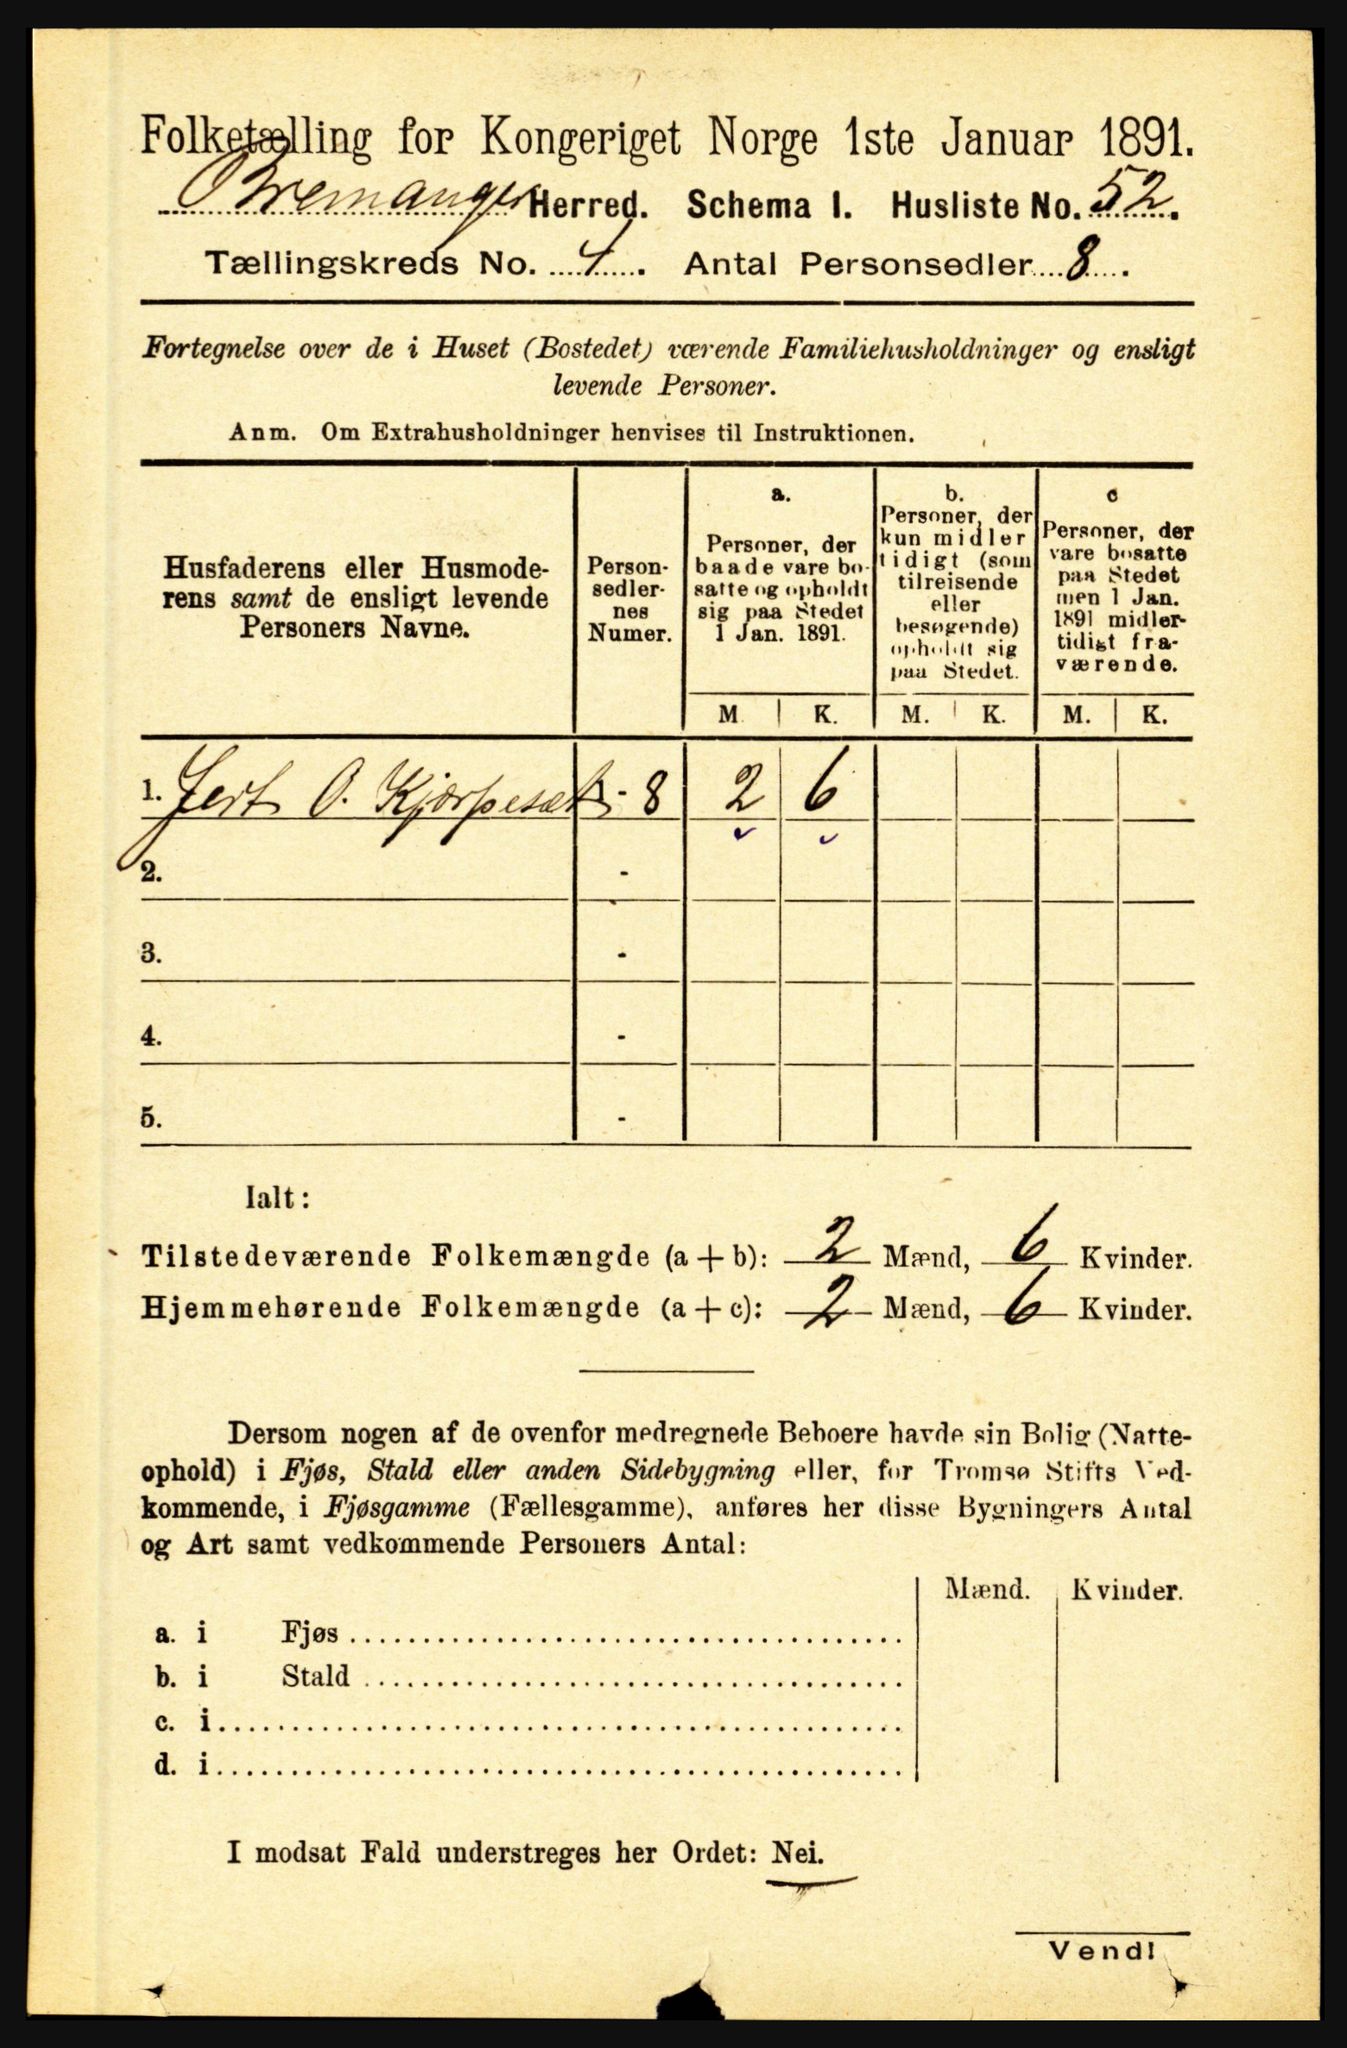 Folketælling for Kongeriget Norge 1ste Januar 1891.
Bremanger Herred. Schema I. Husliste No. 52.
Tællingskreds No. 4. Antal Personsedler 8.
Fortegnelse over de i Huset (Bostedet) værende Familiehusholdninger og ensligt
levende Personer.
Anm. Om Extrahusholdninger henvises til Instruktionen.
Husfaderens eller Husmode-
rens samt de ensligt levende
Personers Navne.
Person-
sedler-
nes
Numer.
a.
Personer, der
baade vare bo-
satte og opholdt
sig paa Stedet
1 Jan. 1891.
b.
Personer, der
kun midler
tidigt (som
tilreisende
eller
besøgende)
opholdt sig
paa Stedet.
c
Personer, der
vare bosatte
paa Stedet
men 1 Jan.
1891 midler-
tidigt fra-
værende.
M K. M. K. M. K.
1. Jert O. Kjørpesæt 1 - 8 2 6
2. -
3. -
4. -
5. -
Ialt:
Tilstedeværende Folkemængde (a + b): 2 Mænd, 6 Kvinder.
Hjemmehørende Folkemængde (a + c): 2 Mænd, 6 Kvinder.
Dersom nogen af de ovenfor medregnede Beboere havde sin Bolig (Natte-
ophold) i Fjøs, Stald eller anden Sidebygning eller, for Tromsø Stifts Ved-
kommende, i Fjøsgamme (Fællesgamme), anføres her disse Bygningers Antal
og Art samt vedkommende Personers Antal:
Mænd. Kvinder.
a. i Fjøs
b. i Stald
c. i
d. i
I modsat Fald understreges her Ordet: Nei.
Vend!